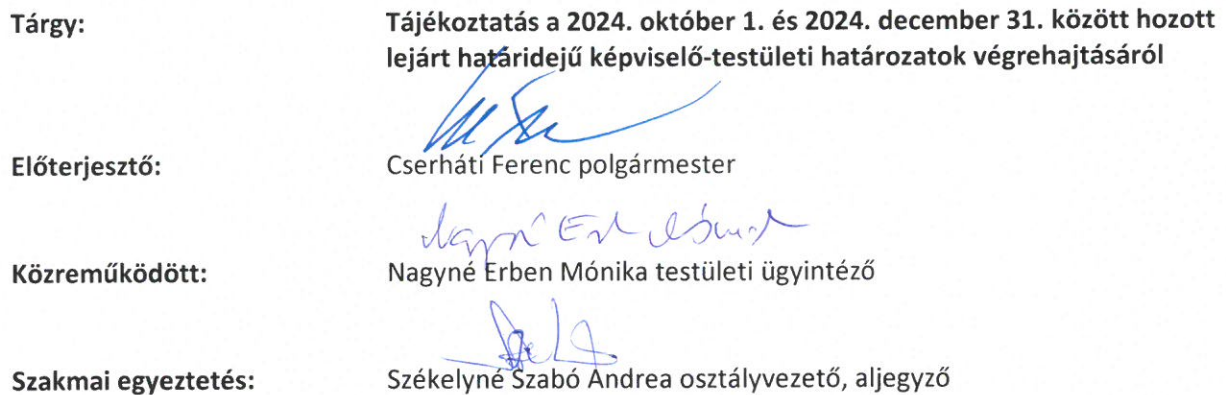 Tárgy: Tájékoztatás a 2024. október 1. és 2024. december 31. között hozott
lejárt határidejű képviselő-testületi határozatok végrehajtásáról
Előterjesztő: Cserháti Ferenc polgármester
Nagyné
Közreműködött: Nagyné Erben Mónika testületi ügyintéző
Szakmai egyeztetés: Székelyné Szabó Andrea osztályvezető, aljegyző